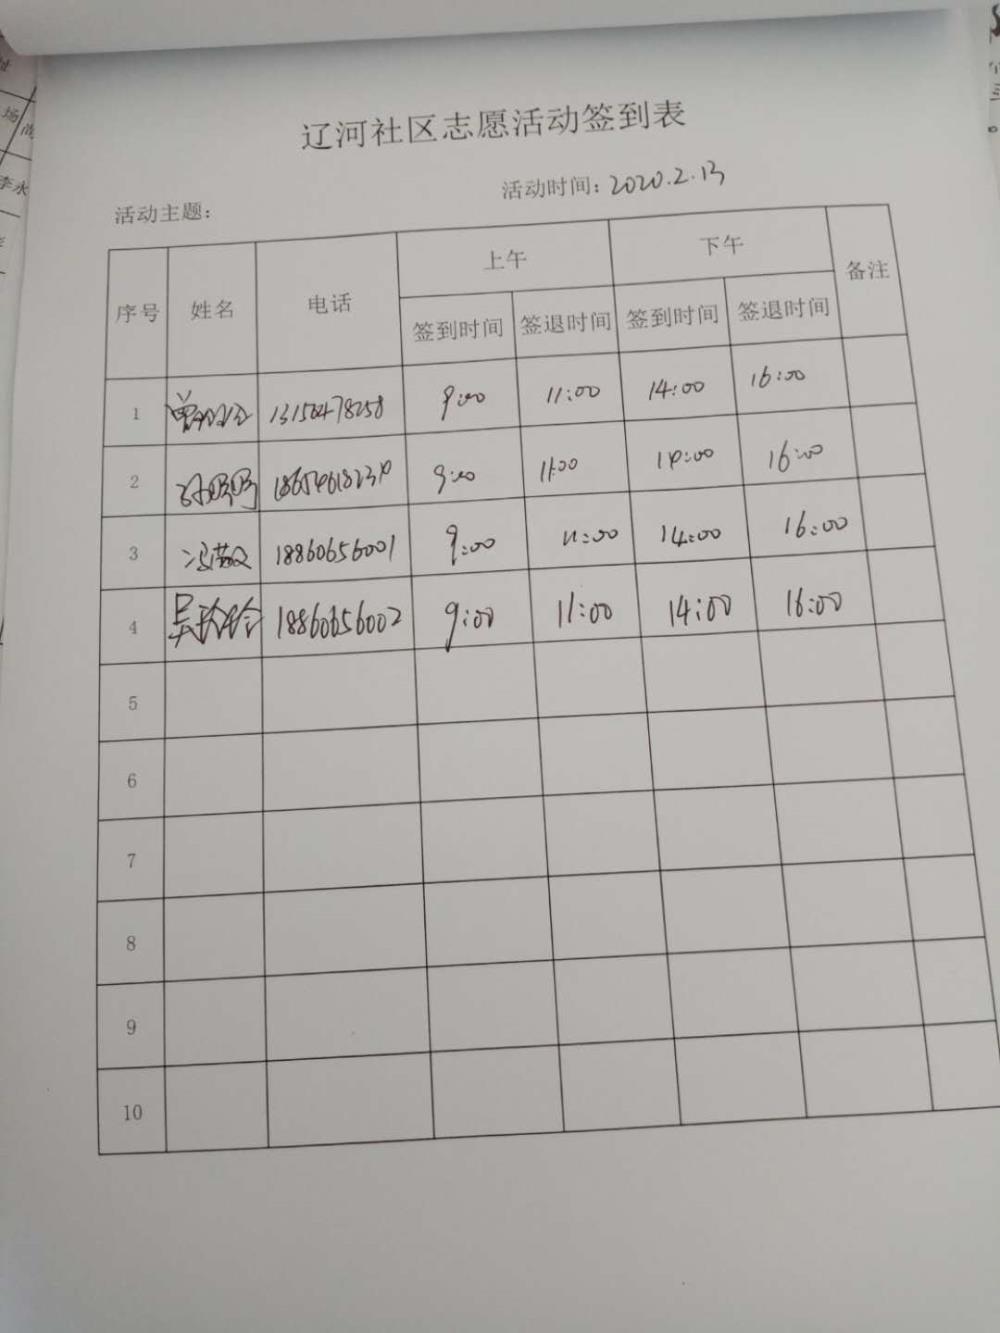 辽河社区志愿活动签到表
活动主题： 活动时间：2020.2.13
序号 姓名 电话 上午 下午 备注
签到时间 签退时间 签到时间 签退时间
1 9:00 11:00 14:00 16:00
2 9:00 11:00 14:00 16:00
3 冯敏 18860656001 9:00 11:00 14:00 16:00
4 吴玲玲 18860656002 9:00 11:00 14:00 16:00
5
6
7
8
9
10